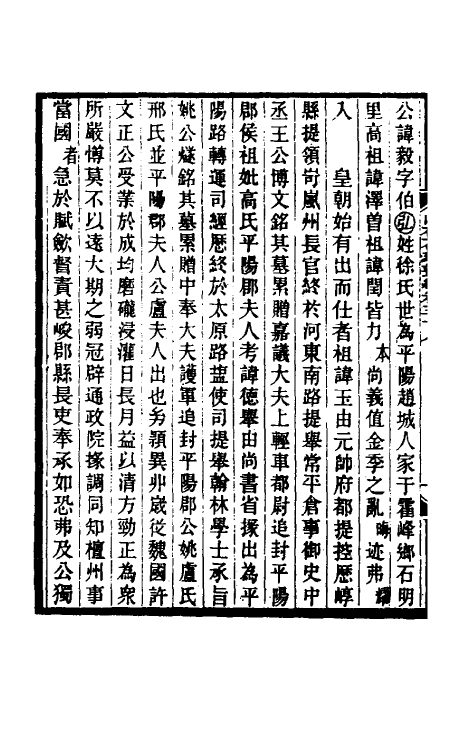 公諱毅字伯弘姓徐氏世為平陽趙城人家于霍峰鄉石明
里高祖諱澤曽祖諱閏皆力本尚義值金季之亂晦迹弗耀
入　皇朝始有出而仕者祖諱玉由元帥府都提控歷崞
縣提領岢嵐州長官終於河東南路提舉常平倉事御史中
丞王公博文銘其墓累贈嘉議大夫上輕車都尉追封平陽
郡侯祖妣高氏平陽郡夫人考諱德舉由尚書省掾出為平
陽路轉運司經歷終於太原路鹽使司提舉翰林學士承旨
姚公燧銘其墓累贈中奉大夫護軍追封平陽郡公妣盧氏
邢氏並平陽郡夫人公盧夫人出也㓜頴異丱嵗從魏國許
文正公受業於成均磨礲浸灌日長月益以清方勁正為衆
所嚴憚莫不以逺大期之弱冠辟通政院掾調同知檀州事
當國者急於賦歛督責甚峻郡縣長吏奉承如恐弗及公獨